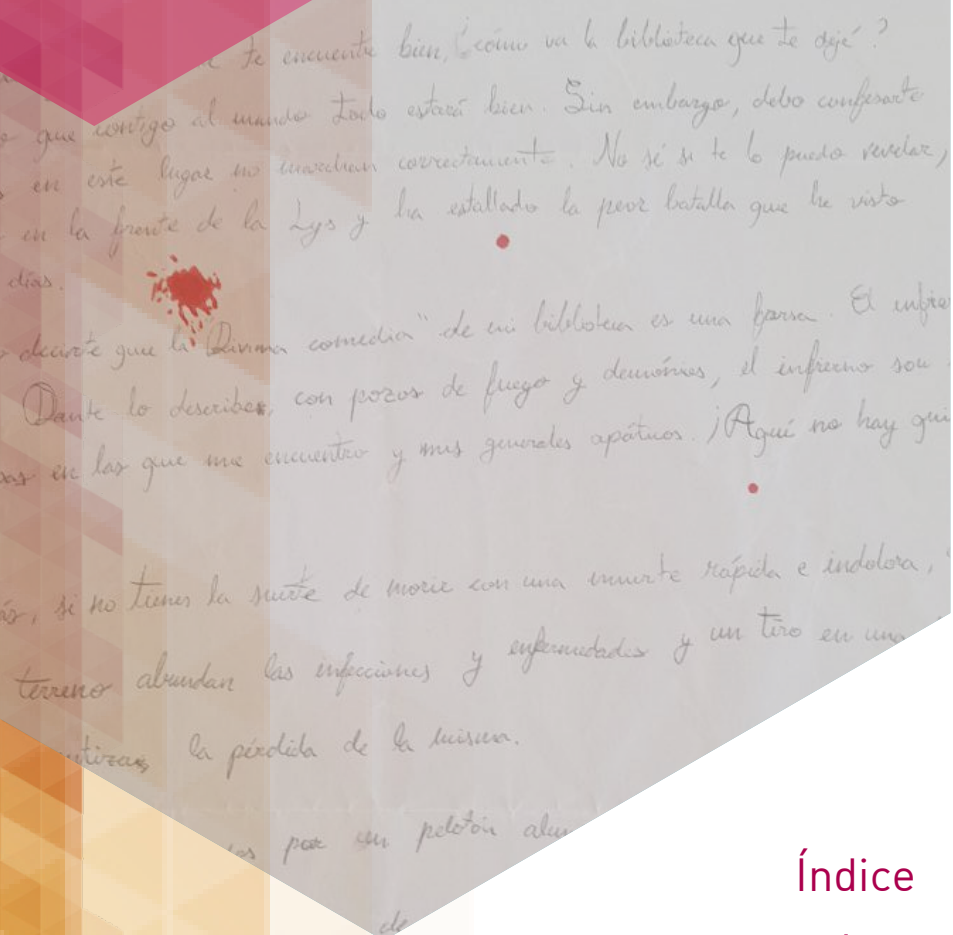 te encuentre bien, ¿cómo va la biblioteca que te dejé?
que contigo al mundo todo estará bien. Sin embargo, debo confesarte
en este lugar no marchan correctamente. No sé si te lo puedo revelar,
en la frente de la Lys y ha estallado la peor batalla que he visto
días.
decirte que la "Divina comedia" de mi biblioteca es una farsa. El infier
Dante lo describes, con pozos de fuego y demonios, el infierno son
en las que me encuentro y mis generales apáticos. ¡Aquí no hay qui
si no tienes la suerte de morir con una muerte rápida e indolora,
terreno abundan las infecciones y enfermedades y un tiro en una
la pérdida de la misma.
por un pelotón
de
Índice